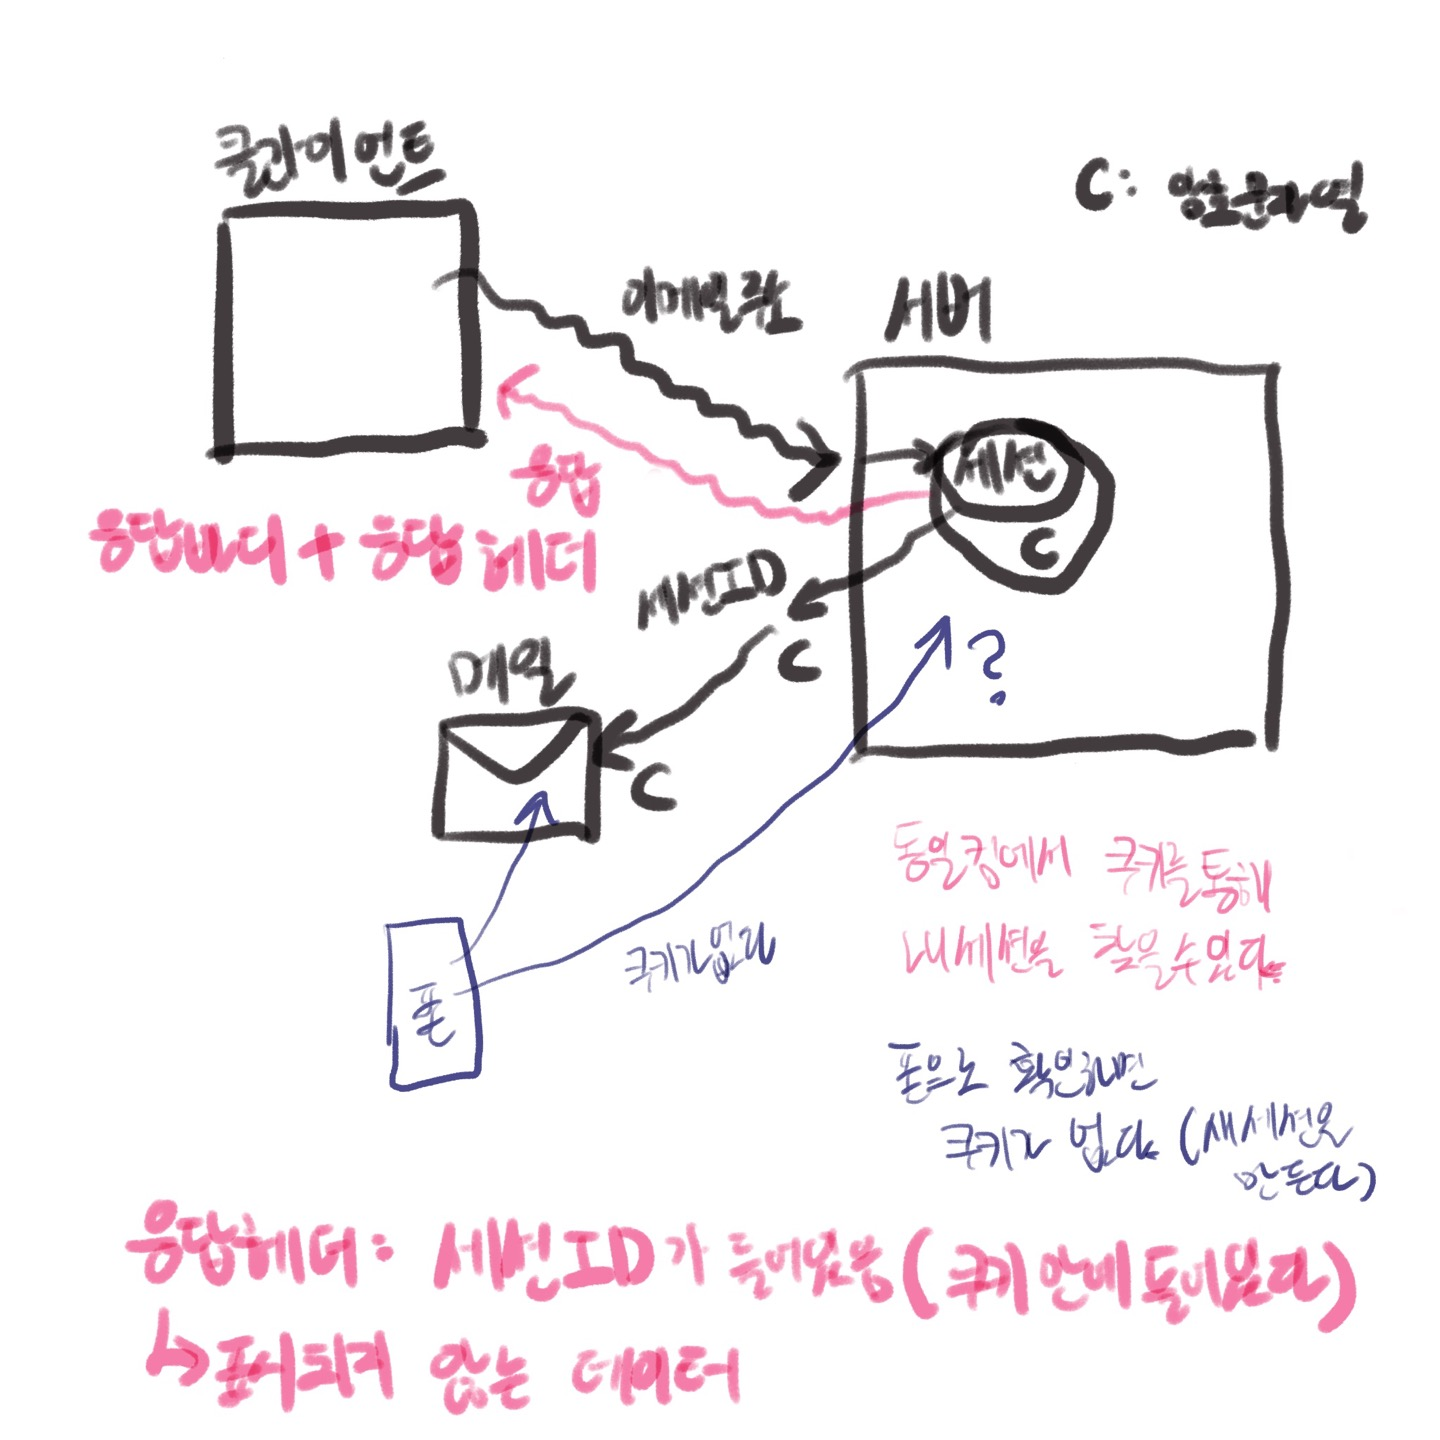 클라이언트
C: 암호문자열
이메일 주소
서버
세션
C
응답
응답바디 + 응답 헤더
세션ID
C
메일
C
?
폰
쿠키가 없다
동일 킹에서 쿠키를 통해
내 세션을 찾을 수 있다.
폰으로 확인하면
쿠키가 없다. (새 세션을
만든다)
응답헤더: 세션ID가 들어있음 (쿠키 안에 들어있다)
↳ 표시되지 않는 데이터